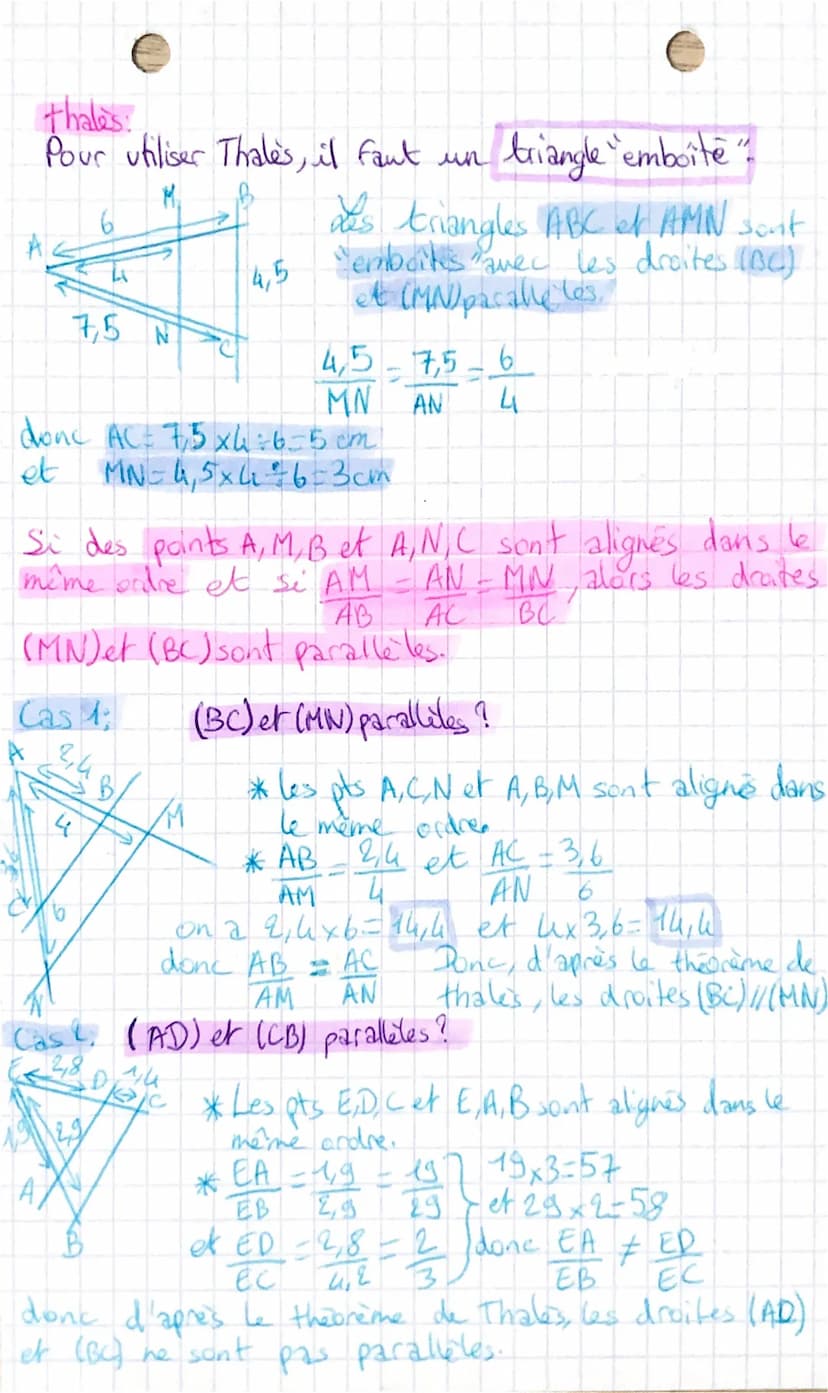 thalès:
Pour utiliser Thalès, il faut un triangle "emboîté".
A M B 6 4 4,5 7,5 N C
Les triangles ABC et AMN sont
"emboîtés" avec les droites (BC)
et (MN) parallèles.
4,5/MN = 7,5/AN = 6/4
donc AC = 7,5 x 4 ÷ 6 = 5 cm
et MN = 4,5 x 4 ÷ 6 = 3 cm
Si des points A, M, B et A, N, C sont alignés dans le
même ordre et si AM/AB = AN/AC = MN/BC, alors les droites
(MN) et (BC) sont parallèles.
Cas 1: (BC) et (MN) parallèles ?
A 2,4 B 4 M 3,6 C 6 N
* les pts A, C, N et A, B, M sont alignés dans
le même ordre.
* AB/AM = 2,4/4 et AC/AN = 3,6/6
on a 2,4 x 6 = 14,4 et 4 x 3,6 = 14,4
donc AB/AM = AC/AN Donc, d'après le théorème de
thalès, les droites (BC) // (MN)
Cas 2. (AD) et (CB) parallèles ?
E 2,8 D 1,4 C 1,9 2,9 A B
* Les pts E, D, C et E, A, B sont alignés dans le
même ordre.
* EA/EB = 1,9/2,9 = 19/29 } 19 x 3 = 57
et 29 x 2 = 58
et ED/EC = 2,8/4,2 = 2/3 donc EA/EB ≠ ED/EC
donc d'après le théorème de Thalès, les droites (AD)
et (BC) ne sont pas parallèles.